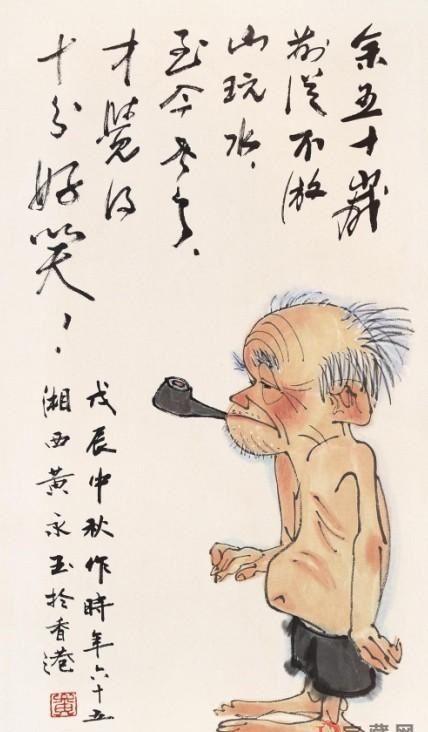 余五十歲
前從不游
山玩水,
至今老了,
才覺得
十分好笑!
戊辰中秋作時年六十五
湘西黃永玉於香港
黃
藏网